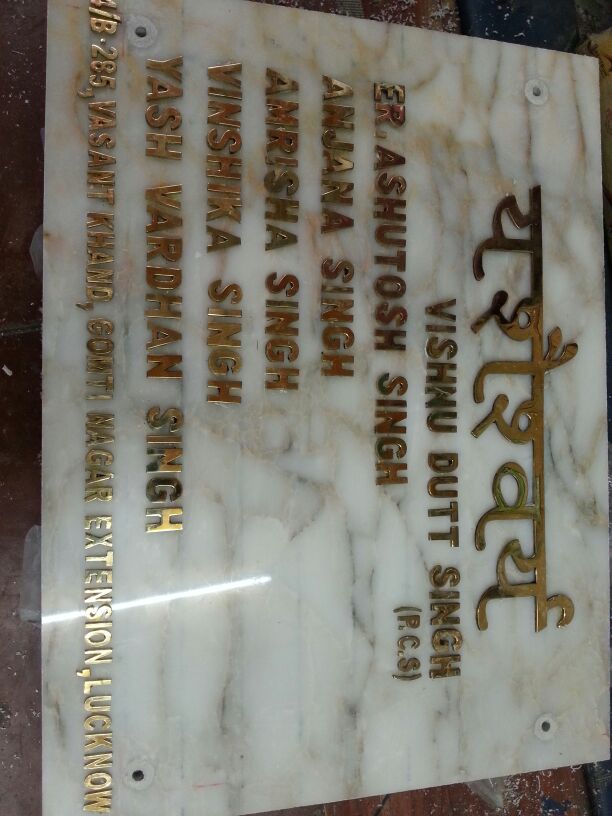 यशैश्वर्य
VISHNU DUTT SINGH
(P.C.S)
ER. ASHUTOSH SINGH
ANJANA SINGH
AMRISHA SINGH
VINSHIKA SINGH
YASH VARDHAN SINGH
4/B -285, VASANT KHAND, GOMTI NAGAR EXTENSION, LUCKNOW